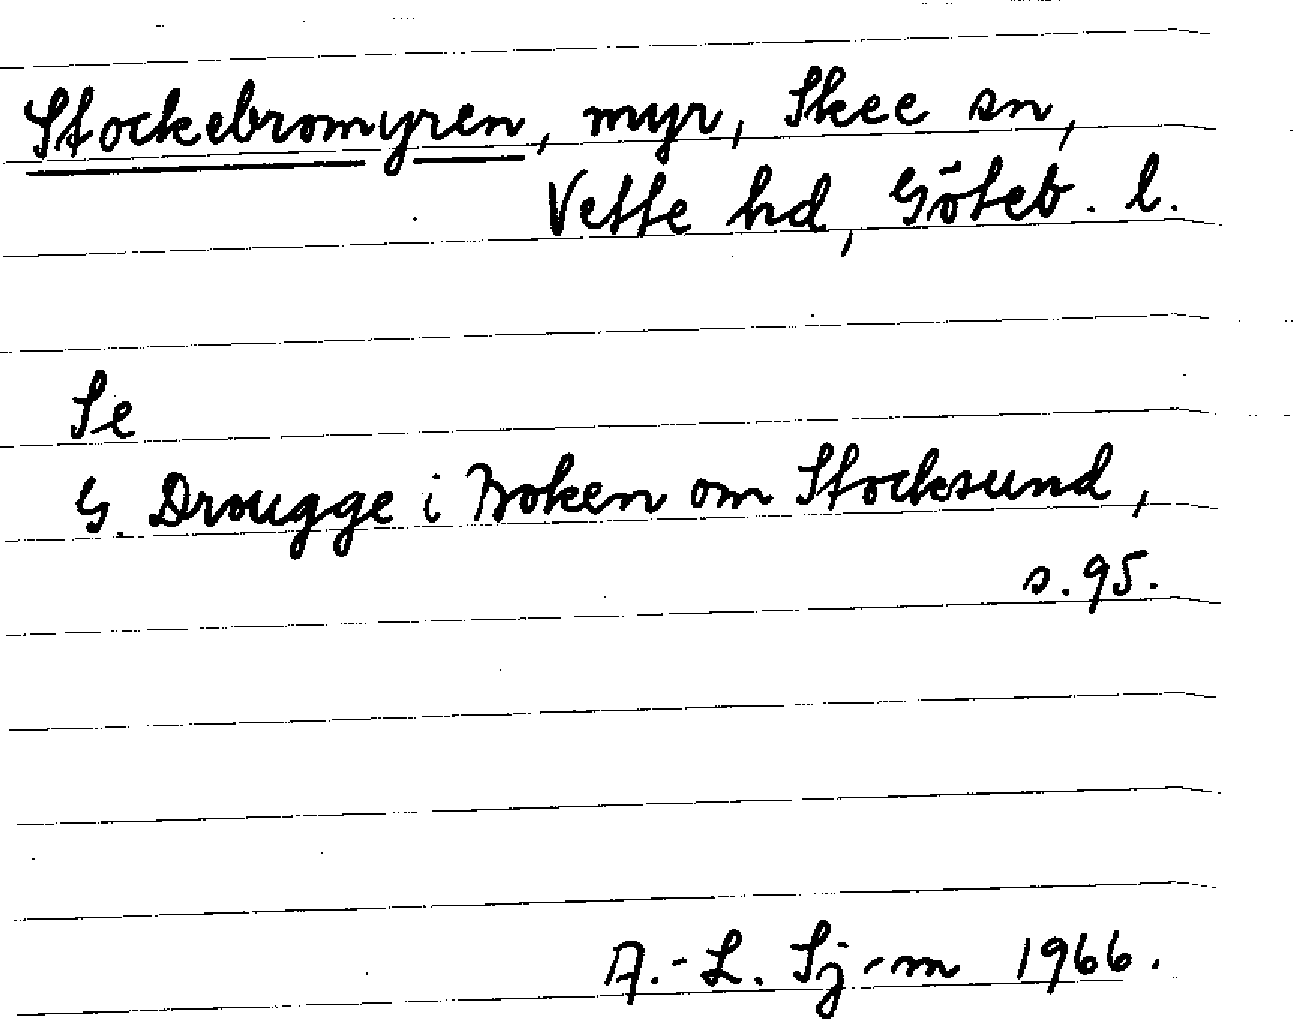 Stockebromyren, myr, Skee sn,
Vette hd, Göteb. l.
Se
G. Drougge i Boken om Stocksund,
s. 95.
A.-L. Sj-m 1966.